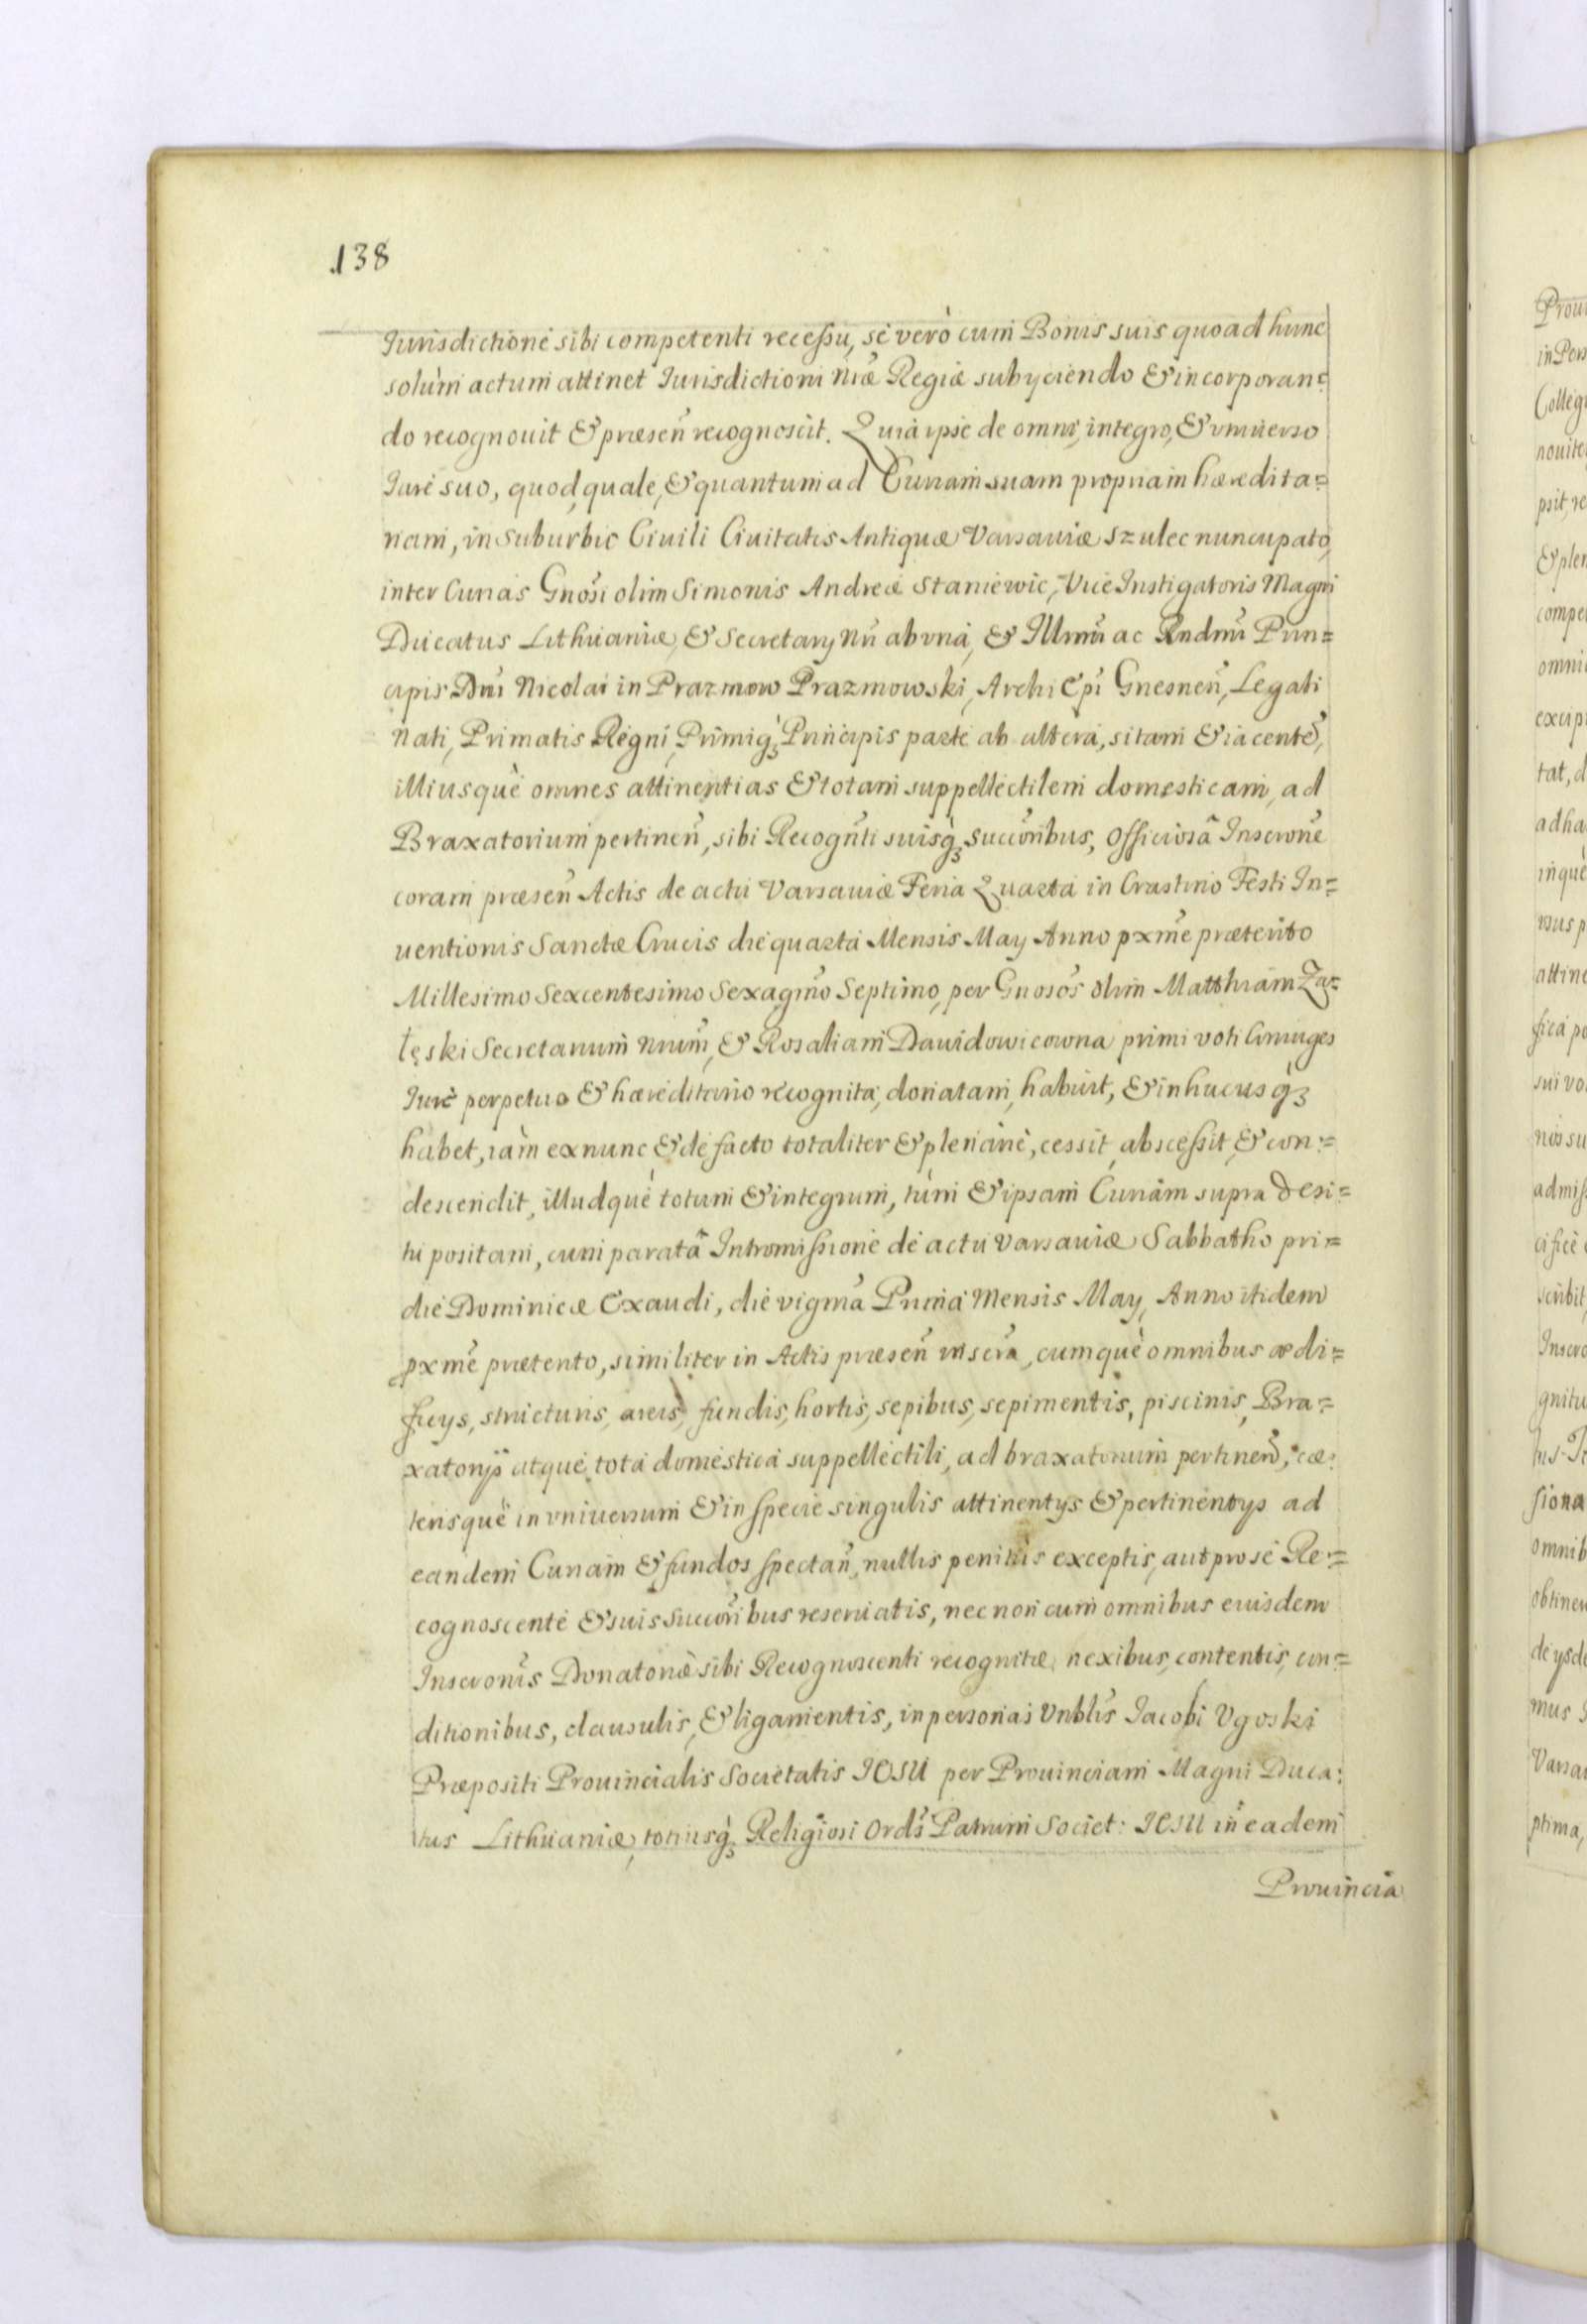 138
Jurisdictione sibi competenti recessu, se verò cum Bonis suis quoad hunc
solùm actum attinet Jurisdictioni nræ Regiæ subyciendo & incorporan=
do recognouit & præsen̄ recognoscit. Quia ipse de omni, integro, & vniuerso
Jure suo, quod, quale, & quantum ad Curiam suam propriam hæredita=
riam, in suburbio Ciuili Ciuitatis Antiquæ Varsauiæ szulec nuncupato,
inter Curias Gnosi olim Simonis Andreæ Staniewic, Vice Instigatoris Magni
Ducatus Lithuaniæ, & Secretarij Nri ab vna, & Illmi ac Rndmi Prin=
cipis Dni Nicolai in Prazmow Prazmowski, Archi Epi Gnesnen̄, Legati
Nati, Primatis Regni, Primiq́ʒ Principis parte ab altera, sitam & iacentē,
illiusquè omnes attinentias & totam suppellectilem domesticam, ad
Braxatorium pertinen̄, sibi Recognti suisq́ʒ succoribus, Officiosâ Inscrone
coram præsen̄ Actis de actu Varsauiæ Feria Quarta in Crastino Festi In=
uentionis Sanctæ Crucis die quarta Mensis May Anno pxme præterito
Millesimo Sexcentesimo Sexagmo Septimo, per Gnosos olim Matthiam Za=
łęski Secretarium Nrum, & Rosaliam Dawidowicowna primi voti Coniuges
Jure perpetuo & hæreditario recognita, donatam, habuit, & in hucusq́ʒ
habet, iàm ex nunc & de facto totaliter & plenariè, cessit, abscessit, & con=
descendit, illudquè totum & integrum, tùm & ipsam Curiam supra de si=
tu positam, cum paratâ Intromissione de actu Varsauiæ Sabbatho pri=
die Dominicæ Exaudi, die vigma Prima Mensis May, Anno itidem
pxme præterito, similiter in Actis præsen̄ inscra, cumquè omnibus ædi=
ficys, stricturis, areis, fundis, hortis, sepibus, sepimentis, piscinis, Bra=
xatorijs atque tota domestica suppellectili, ad braxatorium pertinen̄, cæ=
terisquè in vniuersum & in specie singulis attinentys & pertinentys ad
eandem Curiam & fundos spectan̄, nullis penitùs exceptis, aut pro se Re=
cognoscente & suis succoribus reseruatis, nec non cum omnibus eiusdem
Inscronis Donatoriæ sibi Recognoscenti recognitæ, nexibus, contentis, con=
ditionibus, clausulis, & ligamentis, in personas Vnblis Jacobi Vgoski
Præpositi Prouincialis Societatis IESU per Prouinciam Magni Duca:
tus Lithuaniæ, totiusq́ʒ Religiosi Ordis Patrum Societ: IESU in eadem
Prouincia